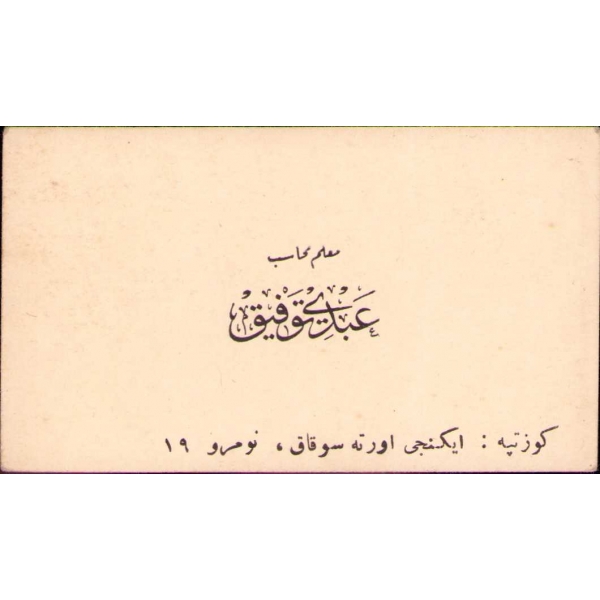 معلم محاسب
عبدی توفیق
کوزتپه : ایکنجی اورته سوقاق ، نومرو ١٩